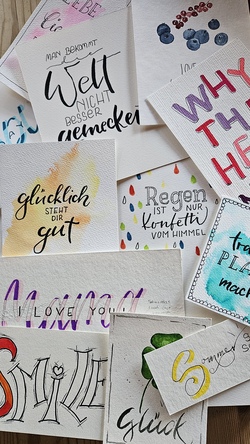 LIEBE
MAN BEKOMMT
die
Welt
NICHT
BESSER
gemeckert
LOVE
WHY
TH
HE
glücklich
STEHT
DIR
gut
Regen
IST NUR
Konfetti
VOM HIMMEL
Mama
I LOVE YOU!
SMILE
Glück
Sommer